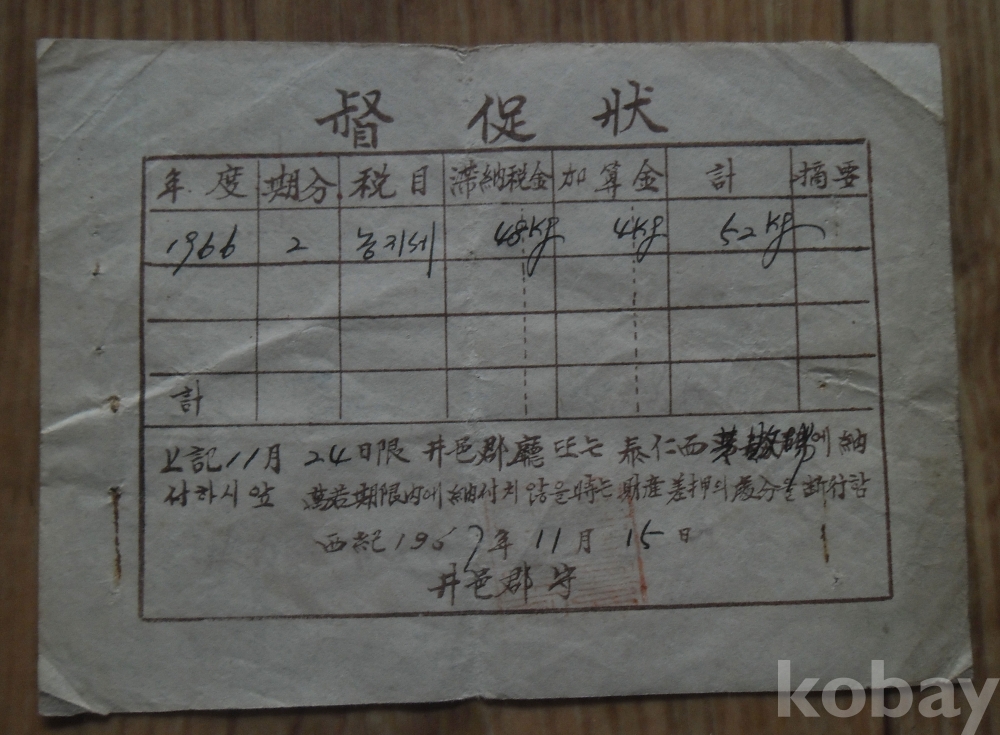 督促狀
年度 期分 税目 滯納税金 加算金 計 摘要
1966 2 농지세 48kg 4kg 52kg
計
上記 11月 24日限 井邑郡廳 또는 泰仁西 에 納
付하시앞 萬若期限內에 納付치 않을時는 財産差押의 處分을 断行함
西紀 1967年 11月 15日
井邑郡守
kobay